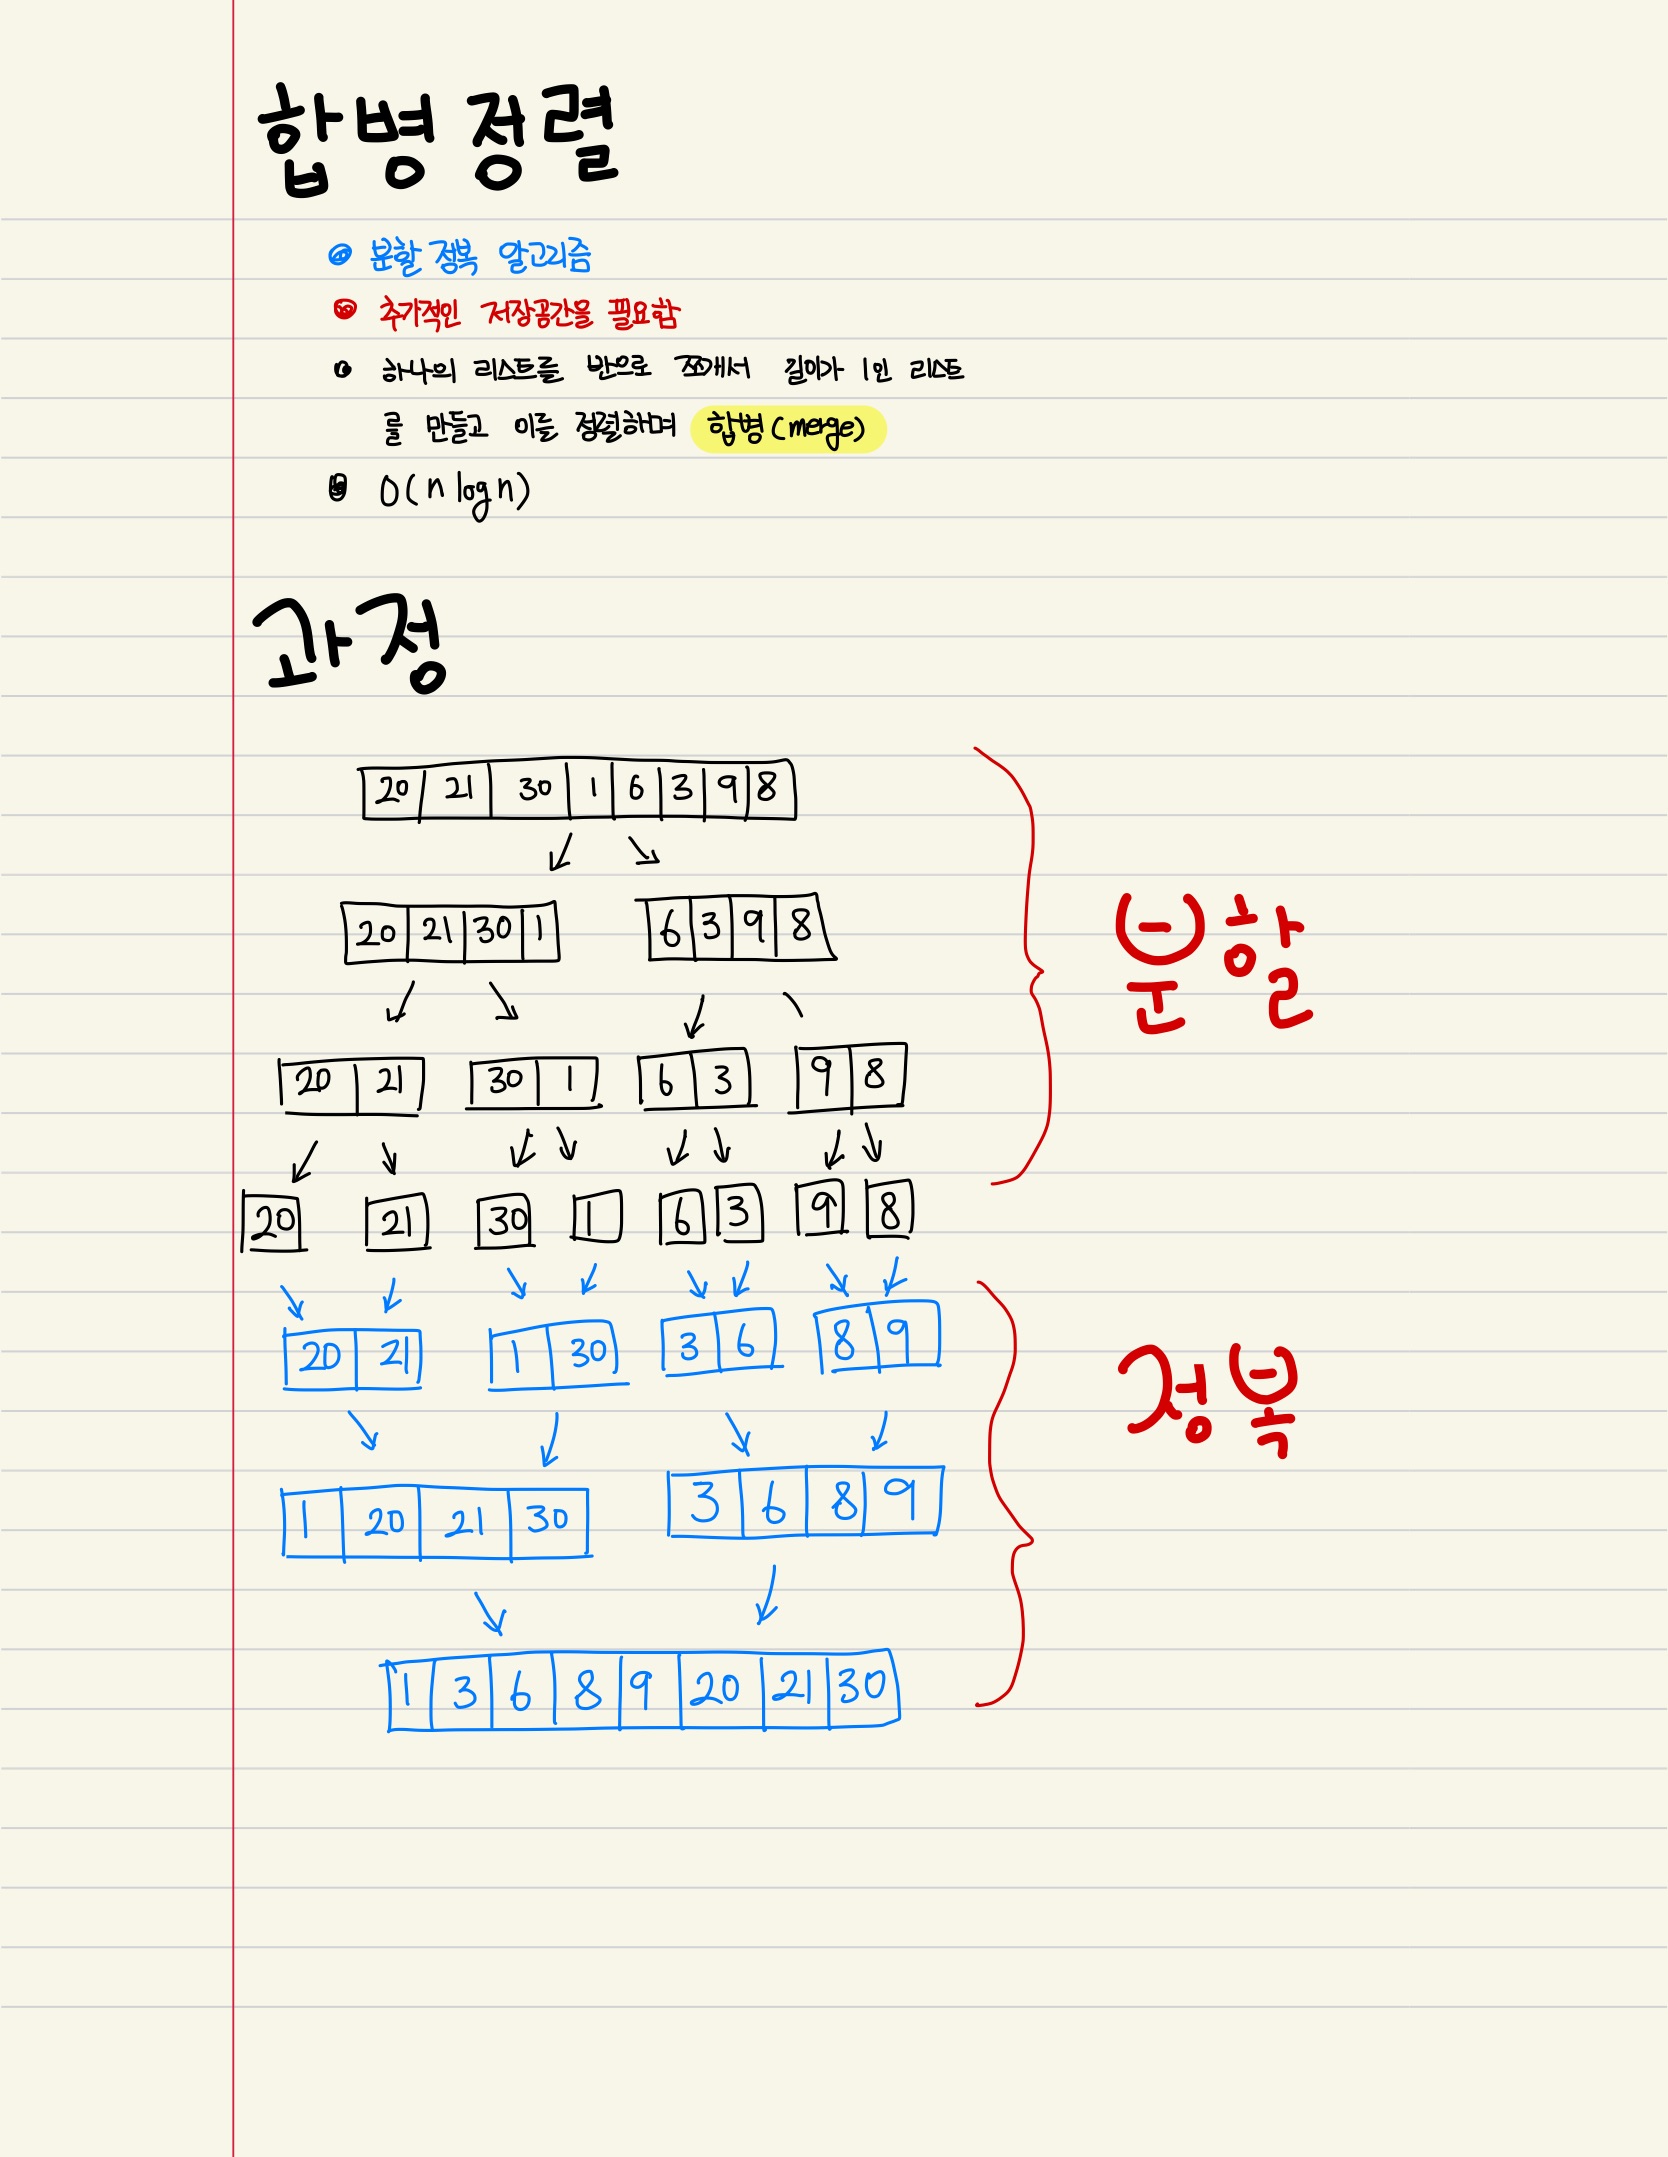 합병 정렬
분할 정복 알고리즘
추가적인 저장공간을 필요함
하나의 리스트를 반으로 쪼개서 길이가 1인 리스트
를 만들고 이를 정렬하며 합병(merge)
O(n log n)
과정
20 21 30 1 6 3 9 8
20 21 30 1 6 3 9 8
분할
20 21 30 1 6 3 9 8
20 21 30 1 6 3 9 8
20 21 1 30 3 6 8 9
정복
1 20 21 30 3 6 8 9
1 3 6 8 9 20 21 30